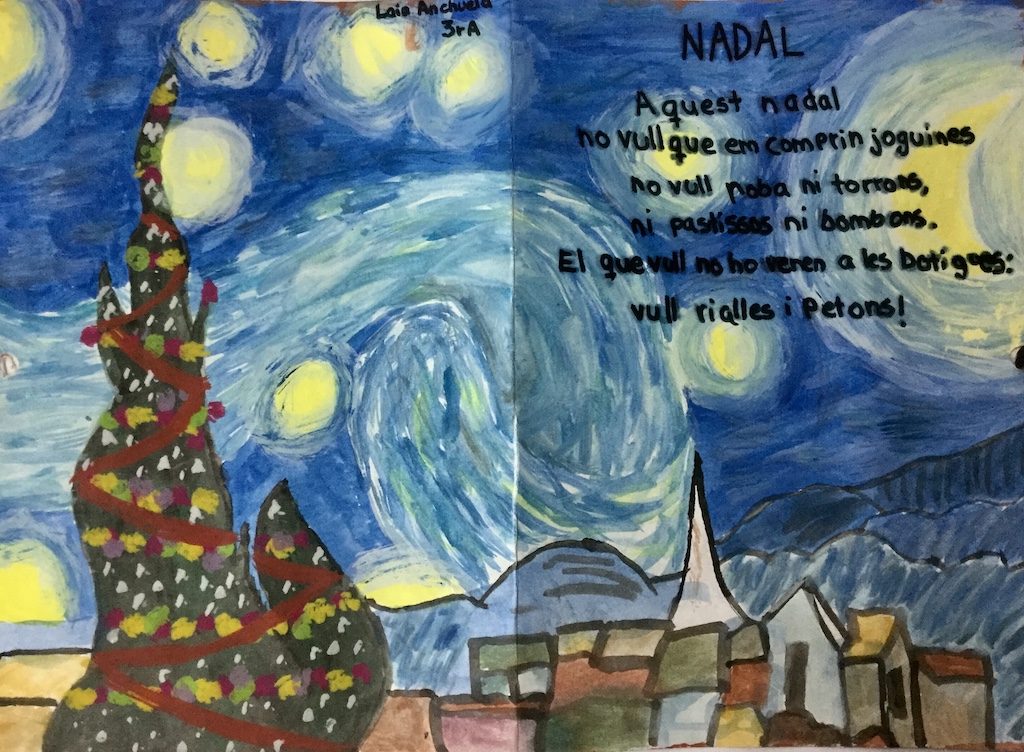 Laia Anchuela
3rA
NADAL
Aquest nadal
no vull que em comprin joguines
no vull roba ni torrons,
ni pastissos ni bombons.
El que vull no ho venen a les botigues:
vull rialles i Petons!